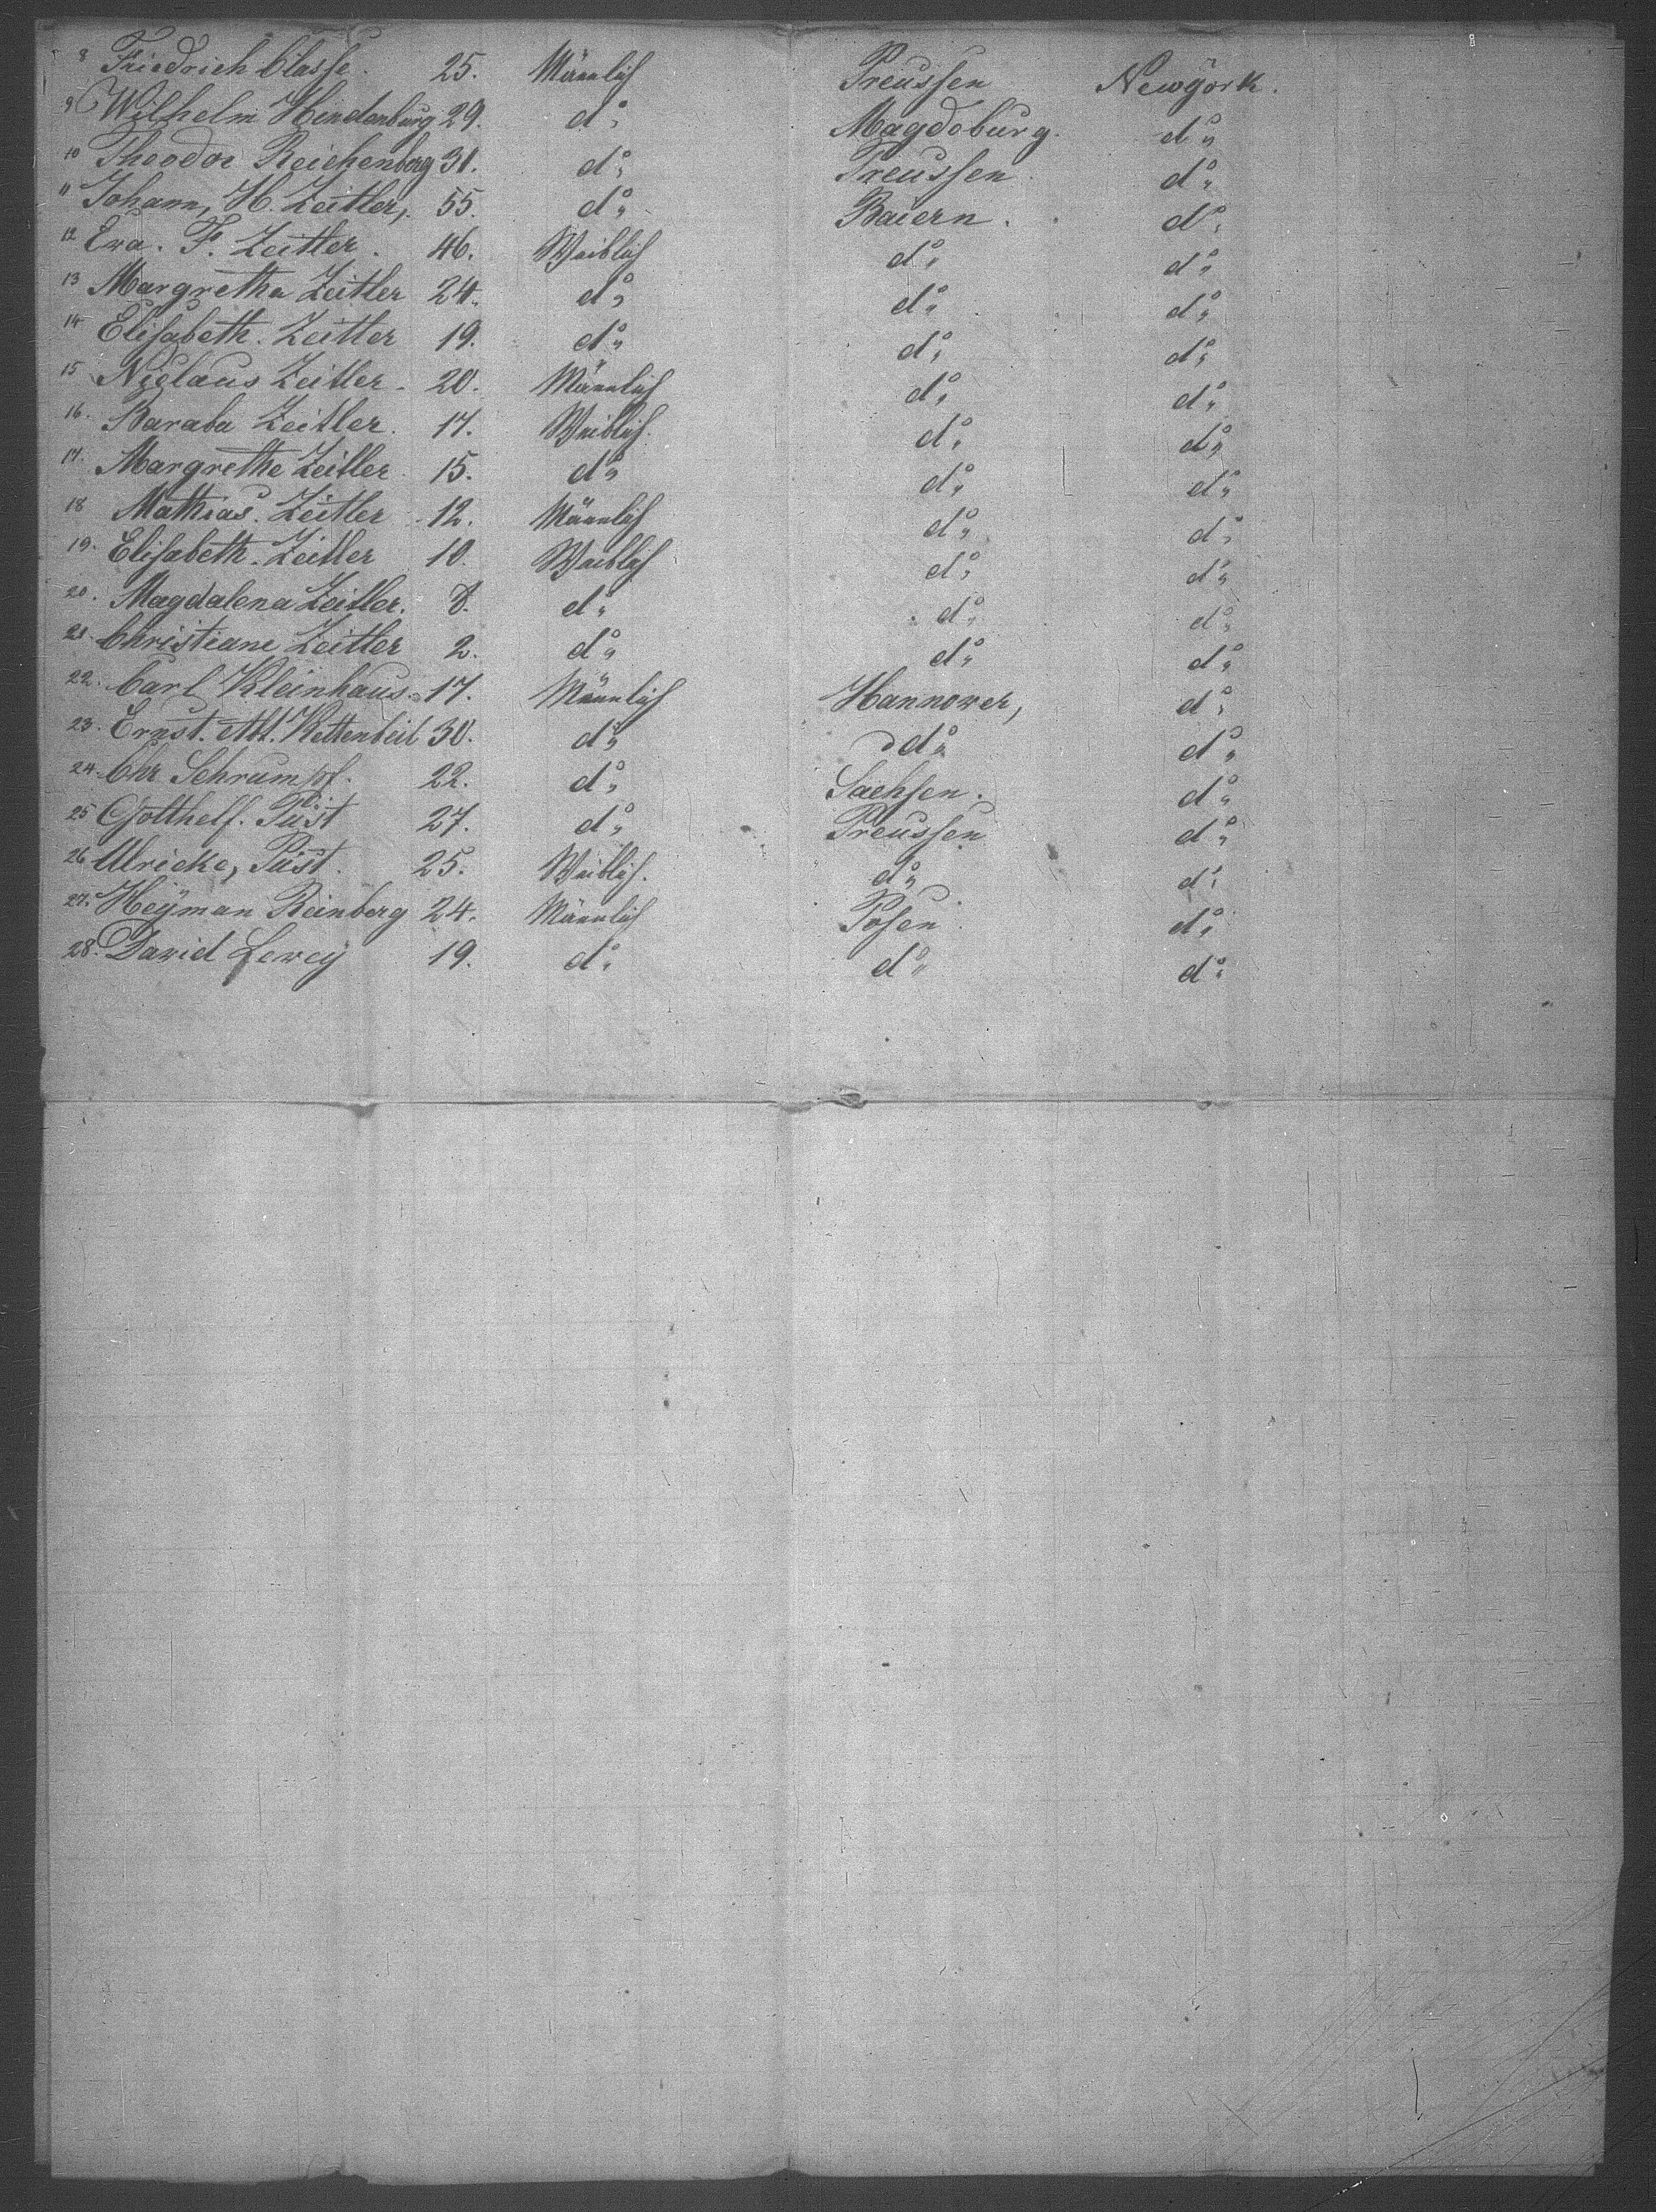 8 Friedrich Classe. 25. Männlich Preussen Newyörk.
9 Wilhelm Hindenburg 29. do Magdeburg. do
10 Theodor Reichenberg 31. do Preussen. do
11 Johann, H. Zeitler, 55. do Baiern. do
12 Eva. F. Zeitler. 46. Weiblich do do
13 Margretha Zeitler 24. do do do
14 Elisabeth. Zeitler 19. do do do
15 Niclaus Zeitler. 20. Männlich do do
16. Baraba Zeitler. 17. Weiblich. do do
17. Margrethe Zeitler. 15. do do do
18 Mathias. Zeitler 12. Männlich do do
19. Elisabeth. Zeitler 10. Weiblich do do
20. Magdalena Zeitler. 8. do do do
21. Christiane Zeitler 2. do do do
22. Carl Kleinhaus. 17. Männlich Hannover, do
23. Ernst. Abt. Kettenbeil 30. do do do
24. Chr Schrumpf. 22. do Sachsen. do
25 Gotthelf. Püst 27. do Preussen do
26 Ulricke, Püst. 25. Weiblich. do do
27. Heÿman Reinberg 24. Männlich Posen. do
28. David Levey 19. do do do